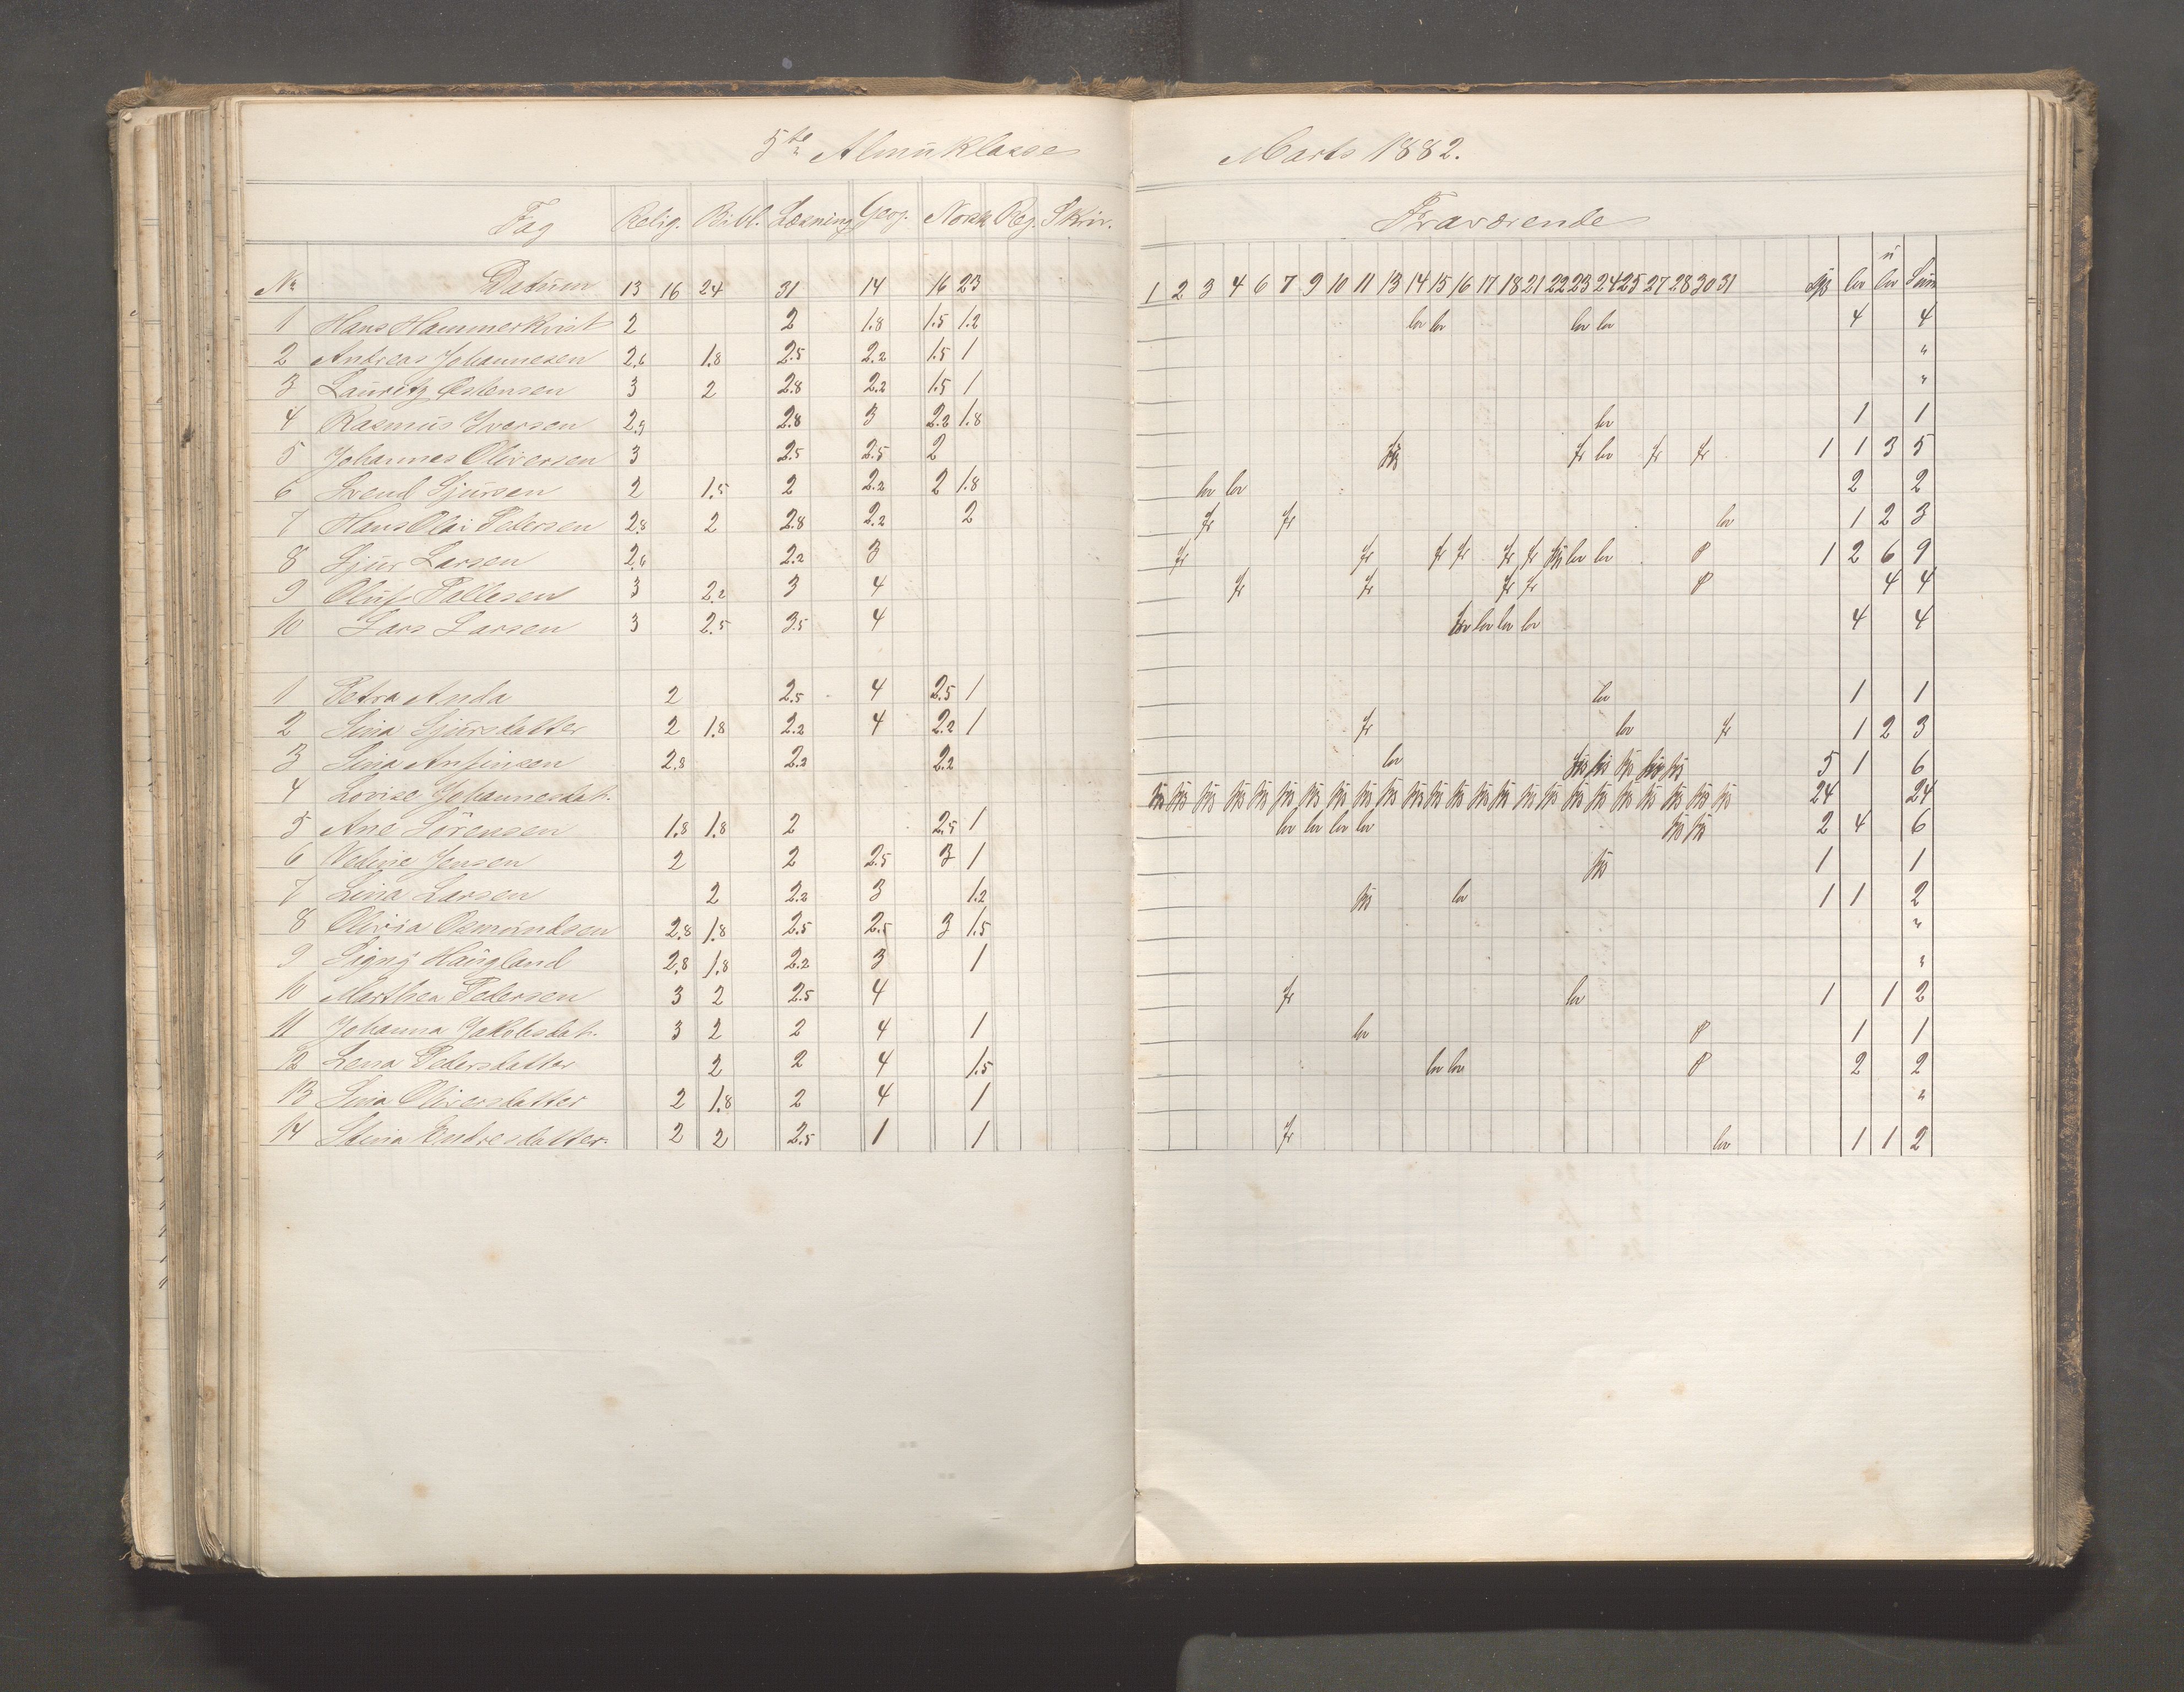 5te Almueklasse
Fag Relig. Bibl. Læsning Geog. Norsk Reg. Skriv.
No Datum 13 16 24 31 14 16 23
1 Hans Hammerkvist 2 2 1.8 1.5 1.2
2 Andreas Johannesen 2.6 1.8 2.5 2.2 1.5 1
3 Lauritz Østensen 3 2 2.8 2.2 1.5 1
4 Rasmus Iversen 2.9 2.8 3 2.2 1.8
5 Johannes Oliversen 3 2.5 2.5 2
6 Svend Sjursen 2 1.5 2 2.2 2 1.8
7 Hans Olai Pedersen 2.8 2 2.8 2.2 2
8 Sjur Larsen 2.6 2.2 3
9 Oluf Tollesen 3 2.2 3 4
10 Lars Larsen 3 2.5 3.5 4
1 Petra Anda 2 2.5 4 2.5 1
2 Sina Sjursdatter 2 1.8 2.2 4 2.2 1
3 Sina Anfinsen 2.8 2.2 2.2
4 Lovise Johannesdat.
5 Ane Sørensen 1.8 1.8 2 2.5 1
6 Nedine Jensen 2 2 2.5 3 1
7 Lina Larsen 2 2.2 3 1.2
8 Olivia Osmundsen 2.8 1.8 2.5 2.5 3 1.5
9 Signy Haugland 2.8 1.8 2.2 3 1
10 Marthea Pedersen 3 2 2.5 4
11 Johanna Jakobsdat. 3 2 2 4 1
12 Lena Pedersdatter 2 2 4 1.5
13 Sina Oliversdatter 2 1.8 2 4 1
14 Stina Endresdatter. 2 2 2.5 1 1
Marts 1882.
Fraværende
1 2 3 4 6 7 9 10 11 13 14 15 16 17 18 21 22 23 24 25 27 28 30 31 syg lov u lov Sum
lov lov lov lov 4 4
"
"
lov 1 1
syg fr lov fr fr 1 1 3 5
lov lov 2 2
fr fr lov 1 2 3
fr fr fr fr fr fr syg lov lov P 1 2 6 9
fr fr fr fr P 4 4
lov lov lov lov 4 4
lov 1 1
fr lov fr 1 2 3
lov syg syg syg syg syg 5 1 6
syg syg syg syg syg syg syg syg syg syg syg syg syg syg syg syg syg syg syg syg syg syg syg syg 24 24
lov lov lov lov syg syg 2 4 6
syg 1 1
syg lov 1 1 2
"
"
fr lov 1 1 2
lov P 1 1
lov lov P 2 2
"
fr lov 1 1 2